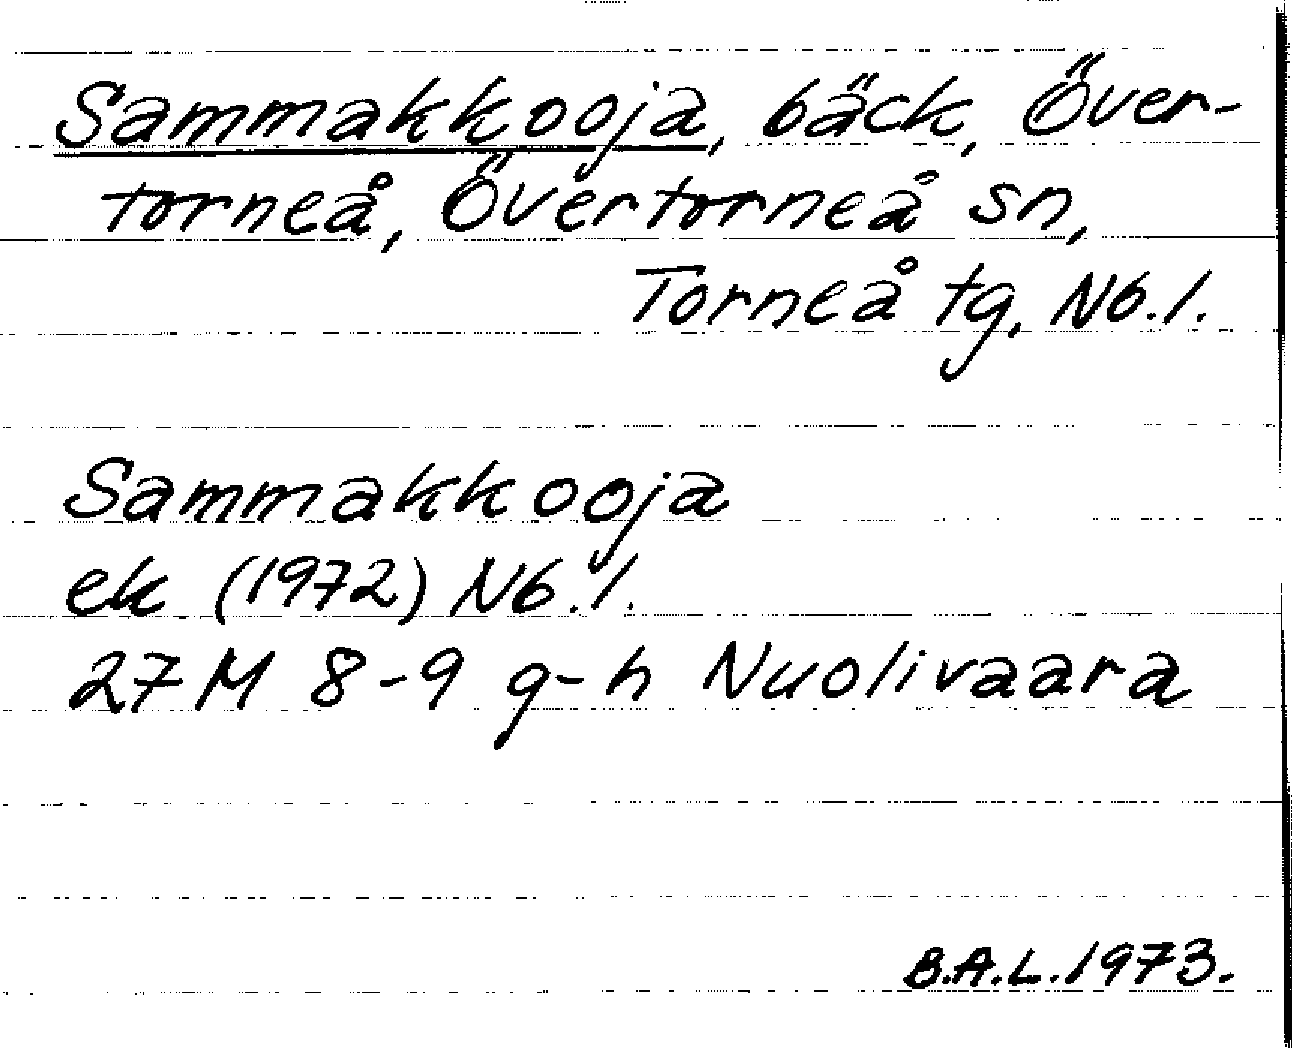 Sammakkooja, bäck, Över-
torneå, Övertorneå sn,
Torneå tg, Nb.l.
Sammakkooja
ek (1972) Nb.l.
27M 8-9 g-h Nuolivaara
B.A.L.1973.